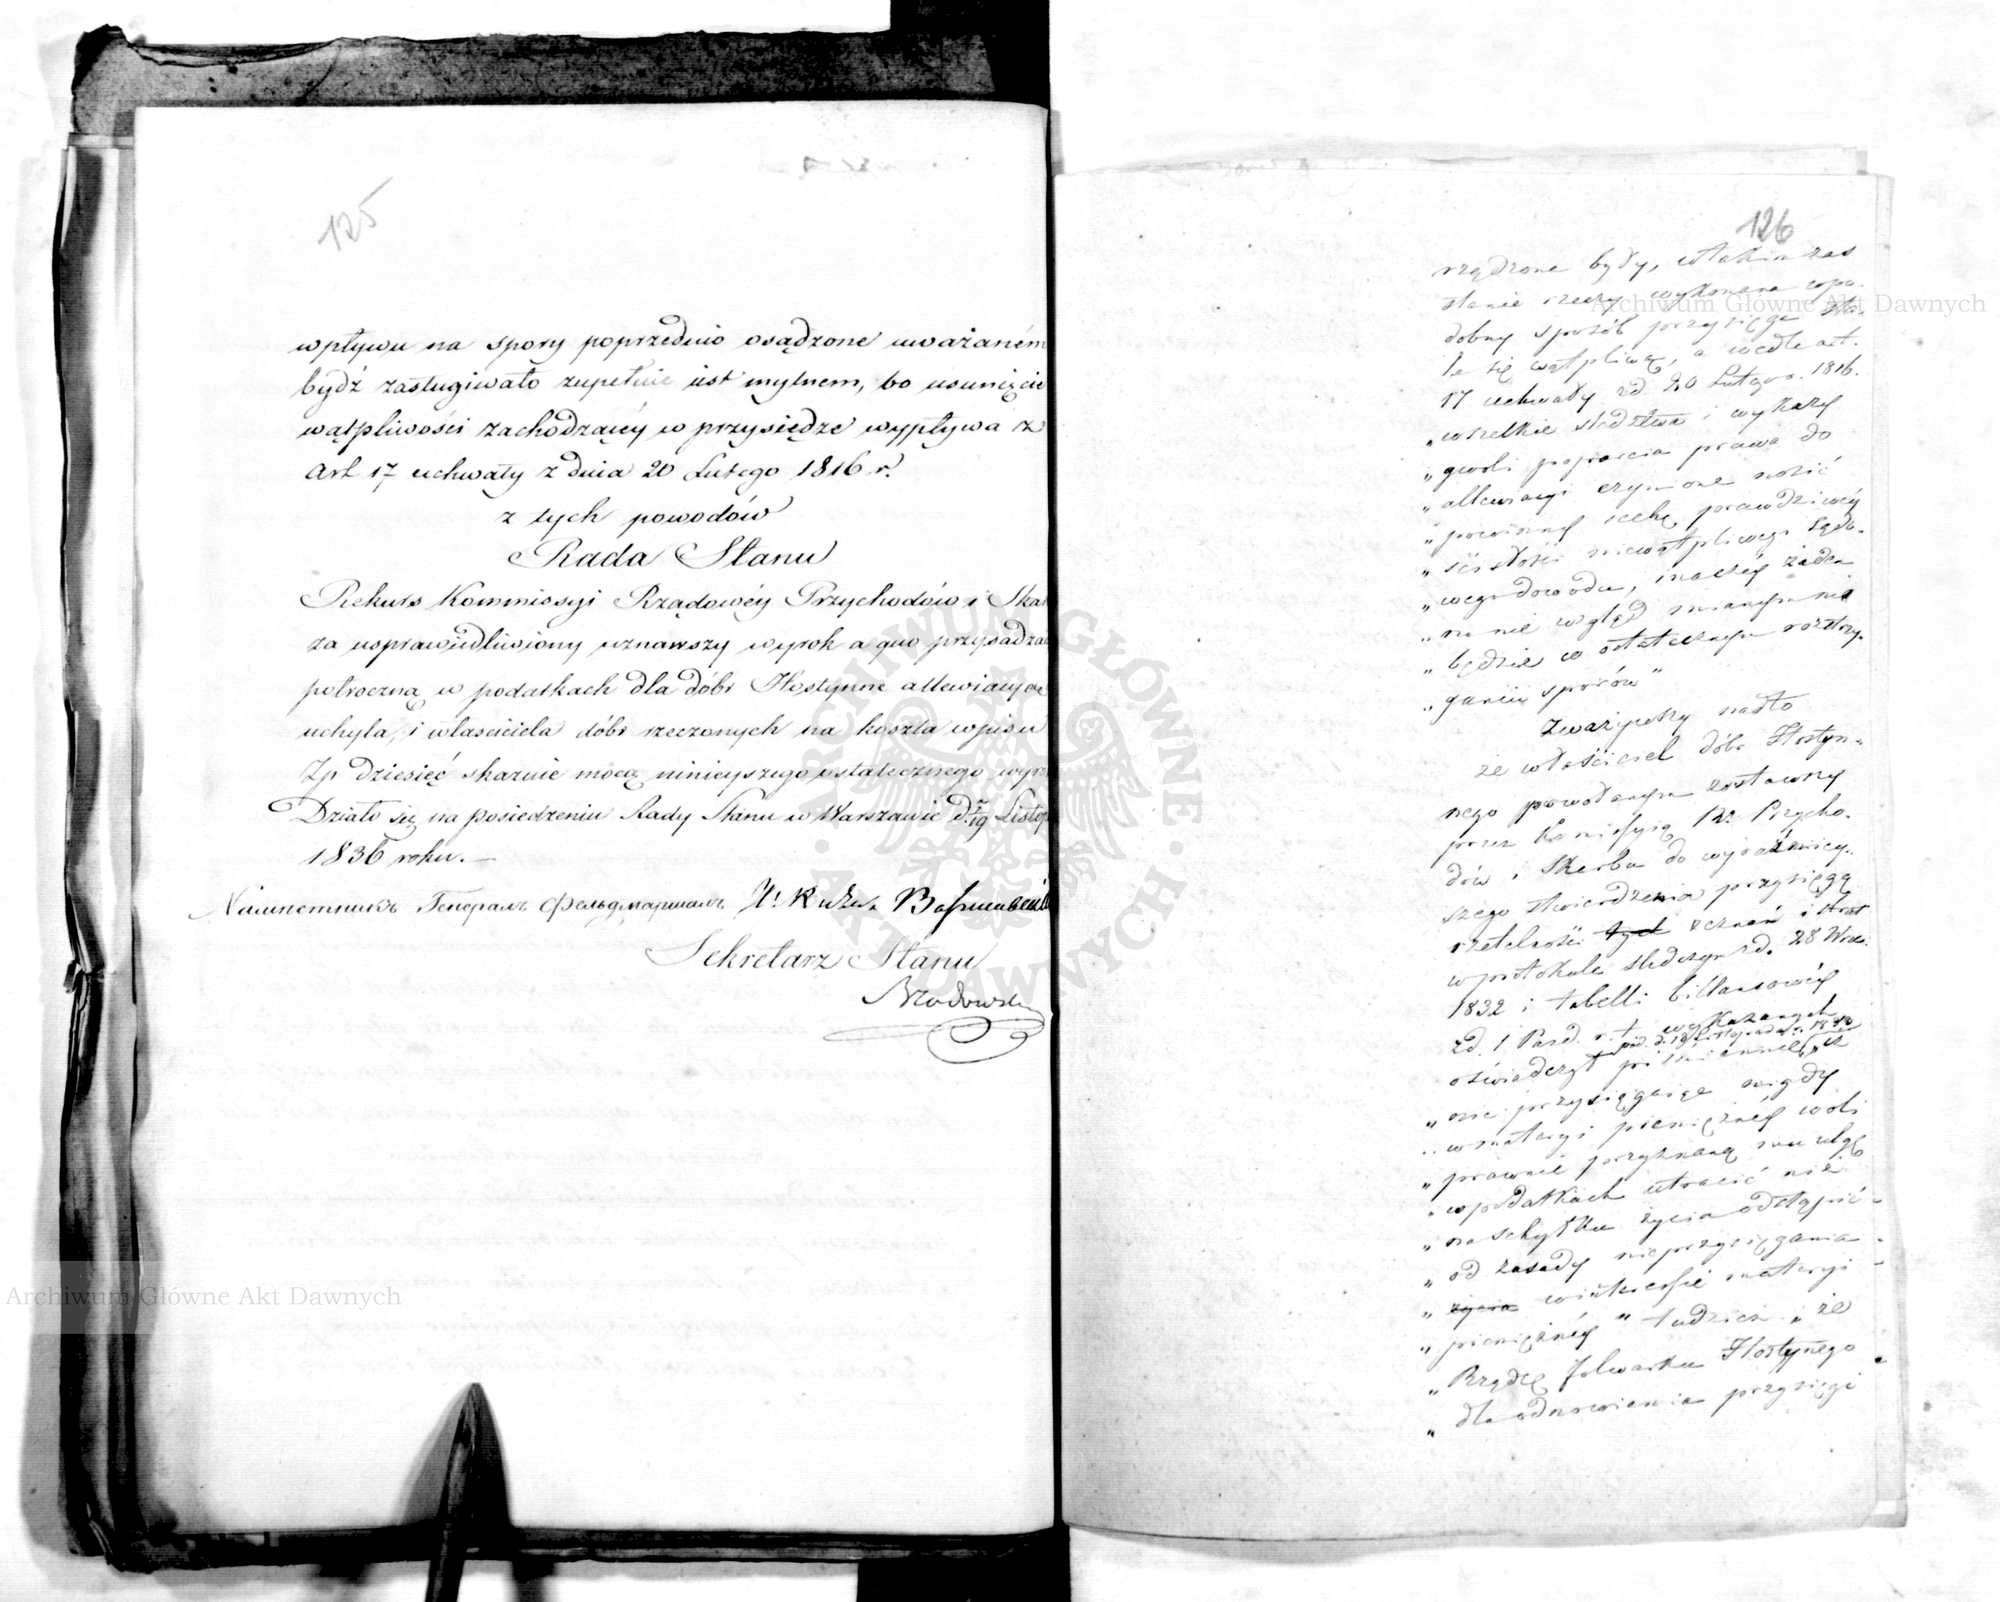 125
wpływu na spory poprzednio osądzone uważaném
bydź zasługiwało zupełnie iest mylnem, bo usunięcie
wątpliwości zachodzącéy w przysiędze wypływa z
Art 17 uchwały z dnia 20 Lutego 1816 r.
z tych powodów
Rada Stanu
Rekurs Kommissyi Rządowéy Przychodów i Skar
za usprawiedliwiony uznawszy wyrok a quo przysądza
półroczną w podatkach dla dóbr Hostynne allewiacyą
uchyla, i własciciela dóbr rzeczonych na koszta wpisu
Zp dziesięć skazuie mocą ninieyszego ostatecznego wyro
Działo się na posiedzeniu Rady Stanu w Warszawie d. 7/19 Listop
1836 roku. –
Наместникъ Генералъ Фельдмаршалъ
Sekretarz Stanu
126
rządzone były, w takim zas
stanie rzeczy wykonana w po-
dobny sposób przysięga sta-
ie się wątpliwą, a wedle art.
17 uchwały z d. 20 Lutego r. 1816.
„wszelkie śledztwa i wykazy
„gwoli poparcia prawa do
„allewiacyi czynione nosić
„powinny cechę prawdziwéy
„ścisłości niewątpliwego Sądo-
„wego dowodu, inaczéy żaden
„na nie wzgląd mianym nie
„będzie w ostatecznym rozstrzy-
„ganiu sporów”
Zważywszy nadto
że właściciel dóbr Hostyn-
nego powołanym zostawszy
przez Komissyią Rz. Przycho-
dów i Skarbu do wyraźniey-
szego stwierdzenia przysięgą
rzetelności tych zeznań i strat
w protokule śledczym z d. 28 Wrze.
1832 i tabelli billansowéy
z d. 1 Pazd. r. t. wykazanych
pod d. 13 Listopada r. 1833
oświadczył piśmiennie, „iż
„nie przysięgaiąc nigdy
„w materyi pieniężnéy woli
„prawnie przyznaną mu ulgę
„w podatkach utracić niż
„na schyłku życia odstąpić
„od zasady nieprzysięgania
„życia w interessie materyi
„pieniężnéy” tudzież „że
„Rządcę folwarku Hostynnego
„dla odnowienia przysięgi
Archiwum Główne Akt Dawnych
Archiwum Główne Akt Dawnych
ARCHIWUM GŁÓWNE AKT DAWNYCH